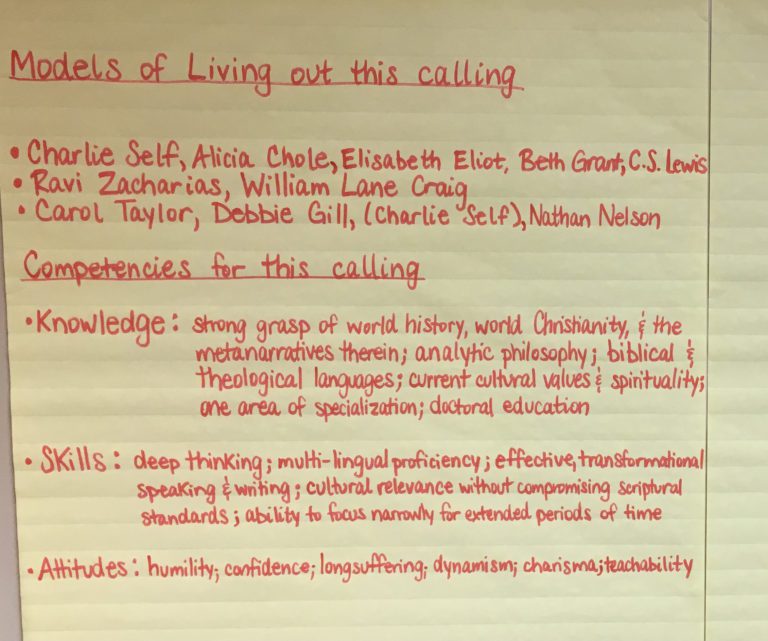 Models of Living out this calling
• Charlie Self, Alicia Chole, Elisabeth Eliot, Beth Grant, C.S. Lewis
• Ravi Zacharias, William Lane Craig
• Carol Taylor, Debbie Gill, (Charlie Self), Nathan Nelson
Competencies for this calling
• Knowledge: strong grasp of world history, world Christianity, & the
metanarratives therein; analytic philosophy; biblical &
theological languages; current cultural values & spirituality;
one area of specialization; doctoral education
• Skills: deep thinking; multi-lingual proficiency; effective, transformational
speaking & writing; cultural relevance without compromising scriptural
standards; ability to focus narrowly for extended periods of time
• Attitudes: humility; confidence; longsuffering; dynamism; charisma; teachability